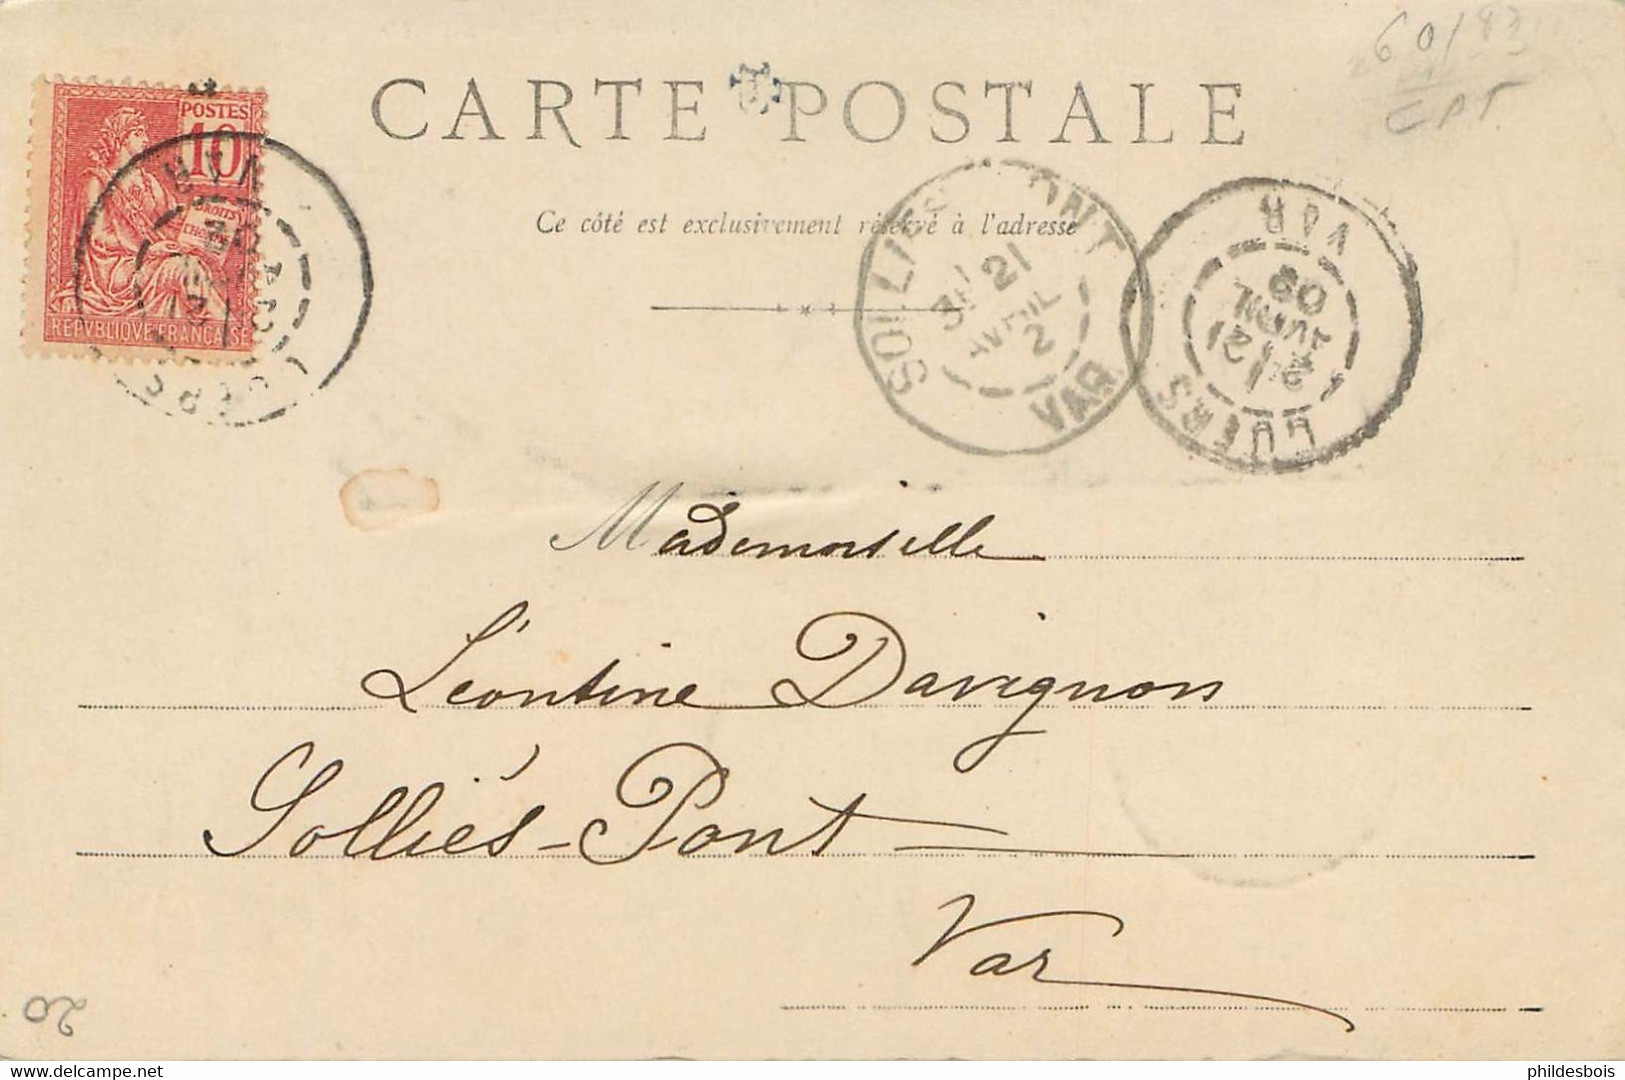 60/83
CPT
CARTE POSTALE
POSTES
10
DROITS
REPVBLIQVE FRANCAISE
VAR
Ce côté est exclusivement réservé à l'adresse
SOLLIES PONT
21
AVRIL
2
VAR
VAR
CUERS
21
AVRIL
02
Mademoiselle
Léontine Davignon
Solliès-Pont
Var
20
delcampe.net
philedesbois